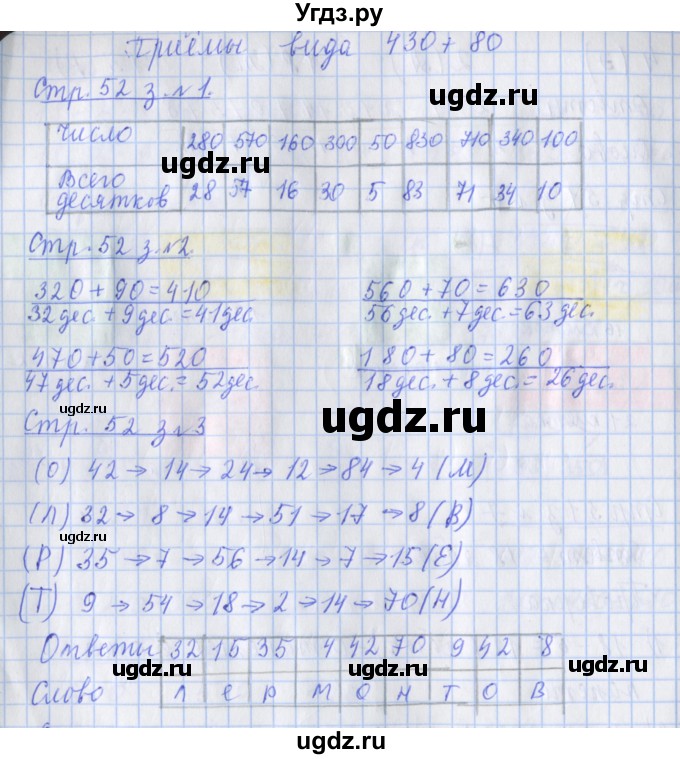 Угдз.ру
Приёмы вида 430 + 80
Стр. 52 з. №1.
ugdz.ru
Число 280 570 160 300 50 830 710 340 100
ugdz.ru
ugdz.ru
Всего десятков 28 57 16 30 5 83 71 34 10
Стр. 52 з. №2
320 + 90 = 410 560 + 70 = 630
32 дес. + 9 дес. = 41 дес. 56 дес. + 7 дес. = 63 дес.
ugdz.ru
470 + 50 = 520 180 + 80 = 260
47 дес. + 5 дес. = 52 дес. 18 дес. + 8 дес. = 26 дес.
ugdz.ru
ugdz.ru
Стр. 52 з №3
(О) 42 → 14 → 24 → 12 → 84 → 4 (М)
(Л) 32 → 8 → 14 → 51 → 17 → 8 (В)
ugdz.ru
(Р) 35 → 7 → 56 → 14 → 7 → 15 (Е)
ugdz.ru
(Т) 9 → 54 → 18 → 2 → 14 → 70 (Н)
ugdz.ru
Ответы 32 15 35 4 42 70 9 42 8
ugdz.ru
ugdz.ru
ugdz.ru
Слово Л Е Р М О Н Т О В
ugdz.ru